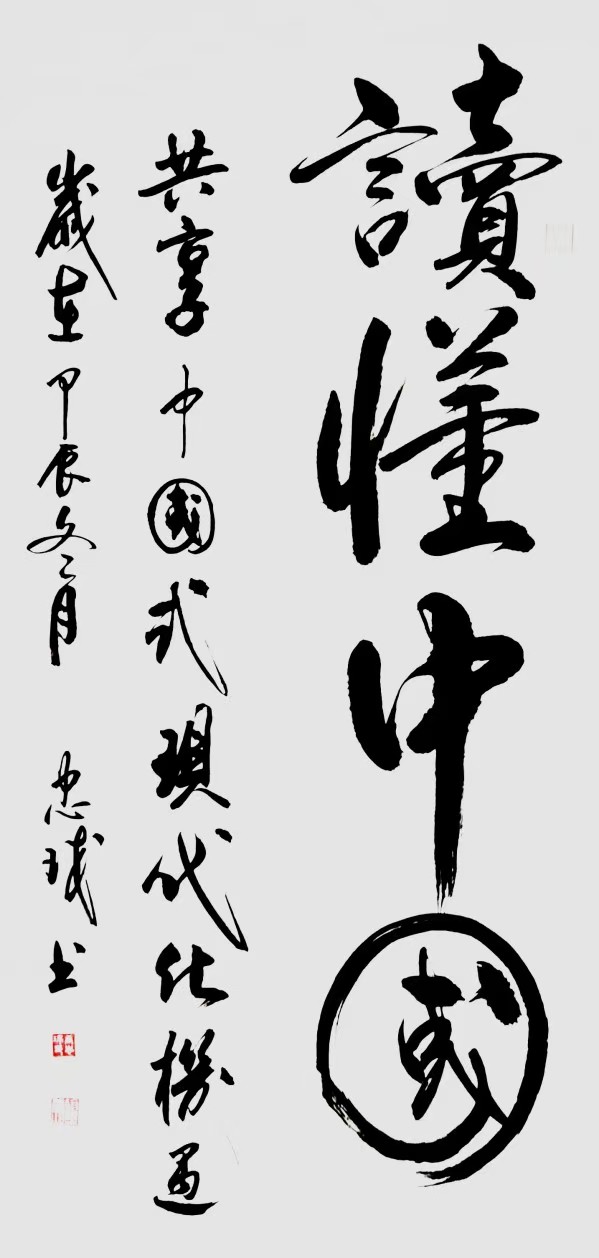 讀懂中國
共享中國式現代化機遇
歲在甲辰冬月 忠书